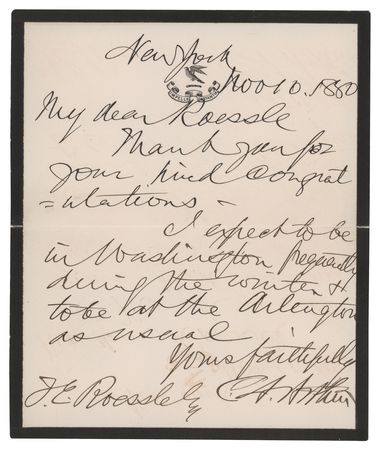 New York
Nov 10. 1880
My dear Roessle
Thank you for
your kind congrat
=ulations -
I expect to be
in Washington frequently
during the winter &
to be at the Arlington
as usual
Yours faithfully
C. A. Arthur
T. E. Roessle Esq